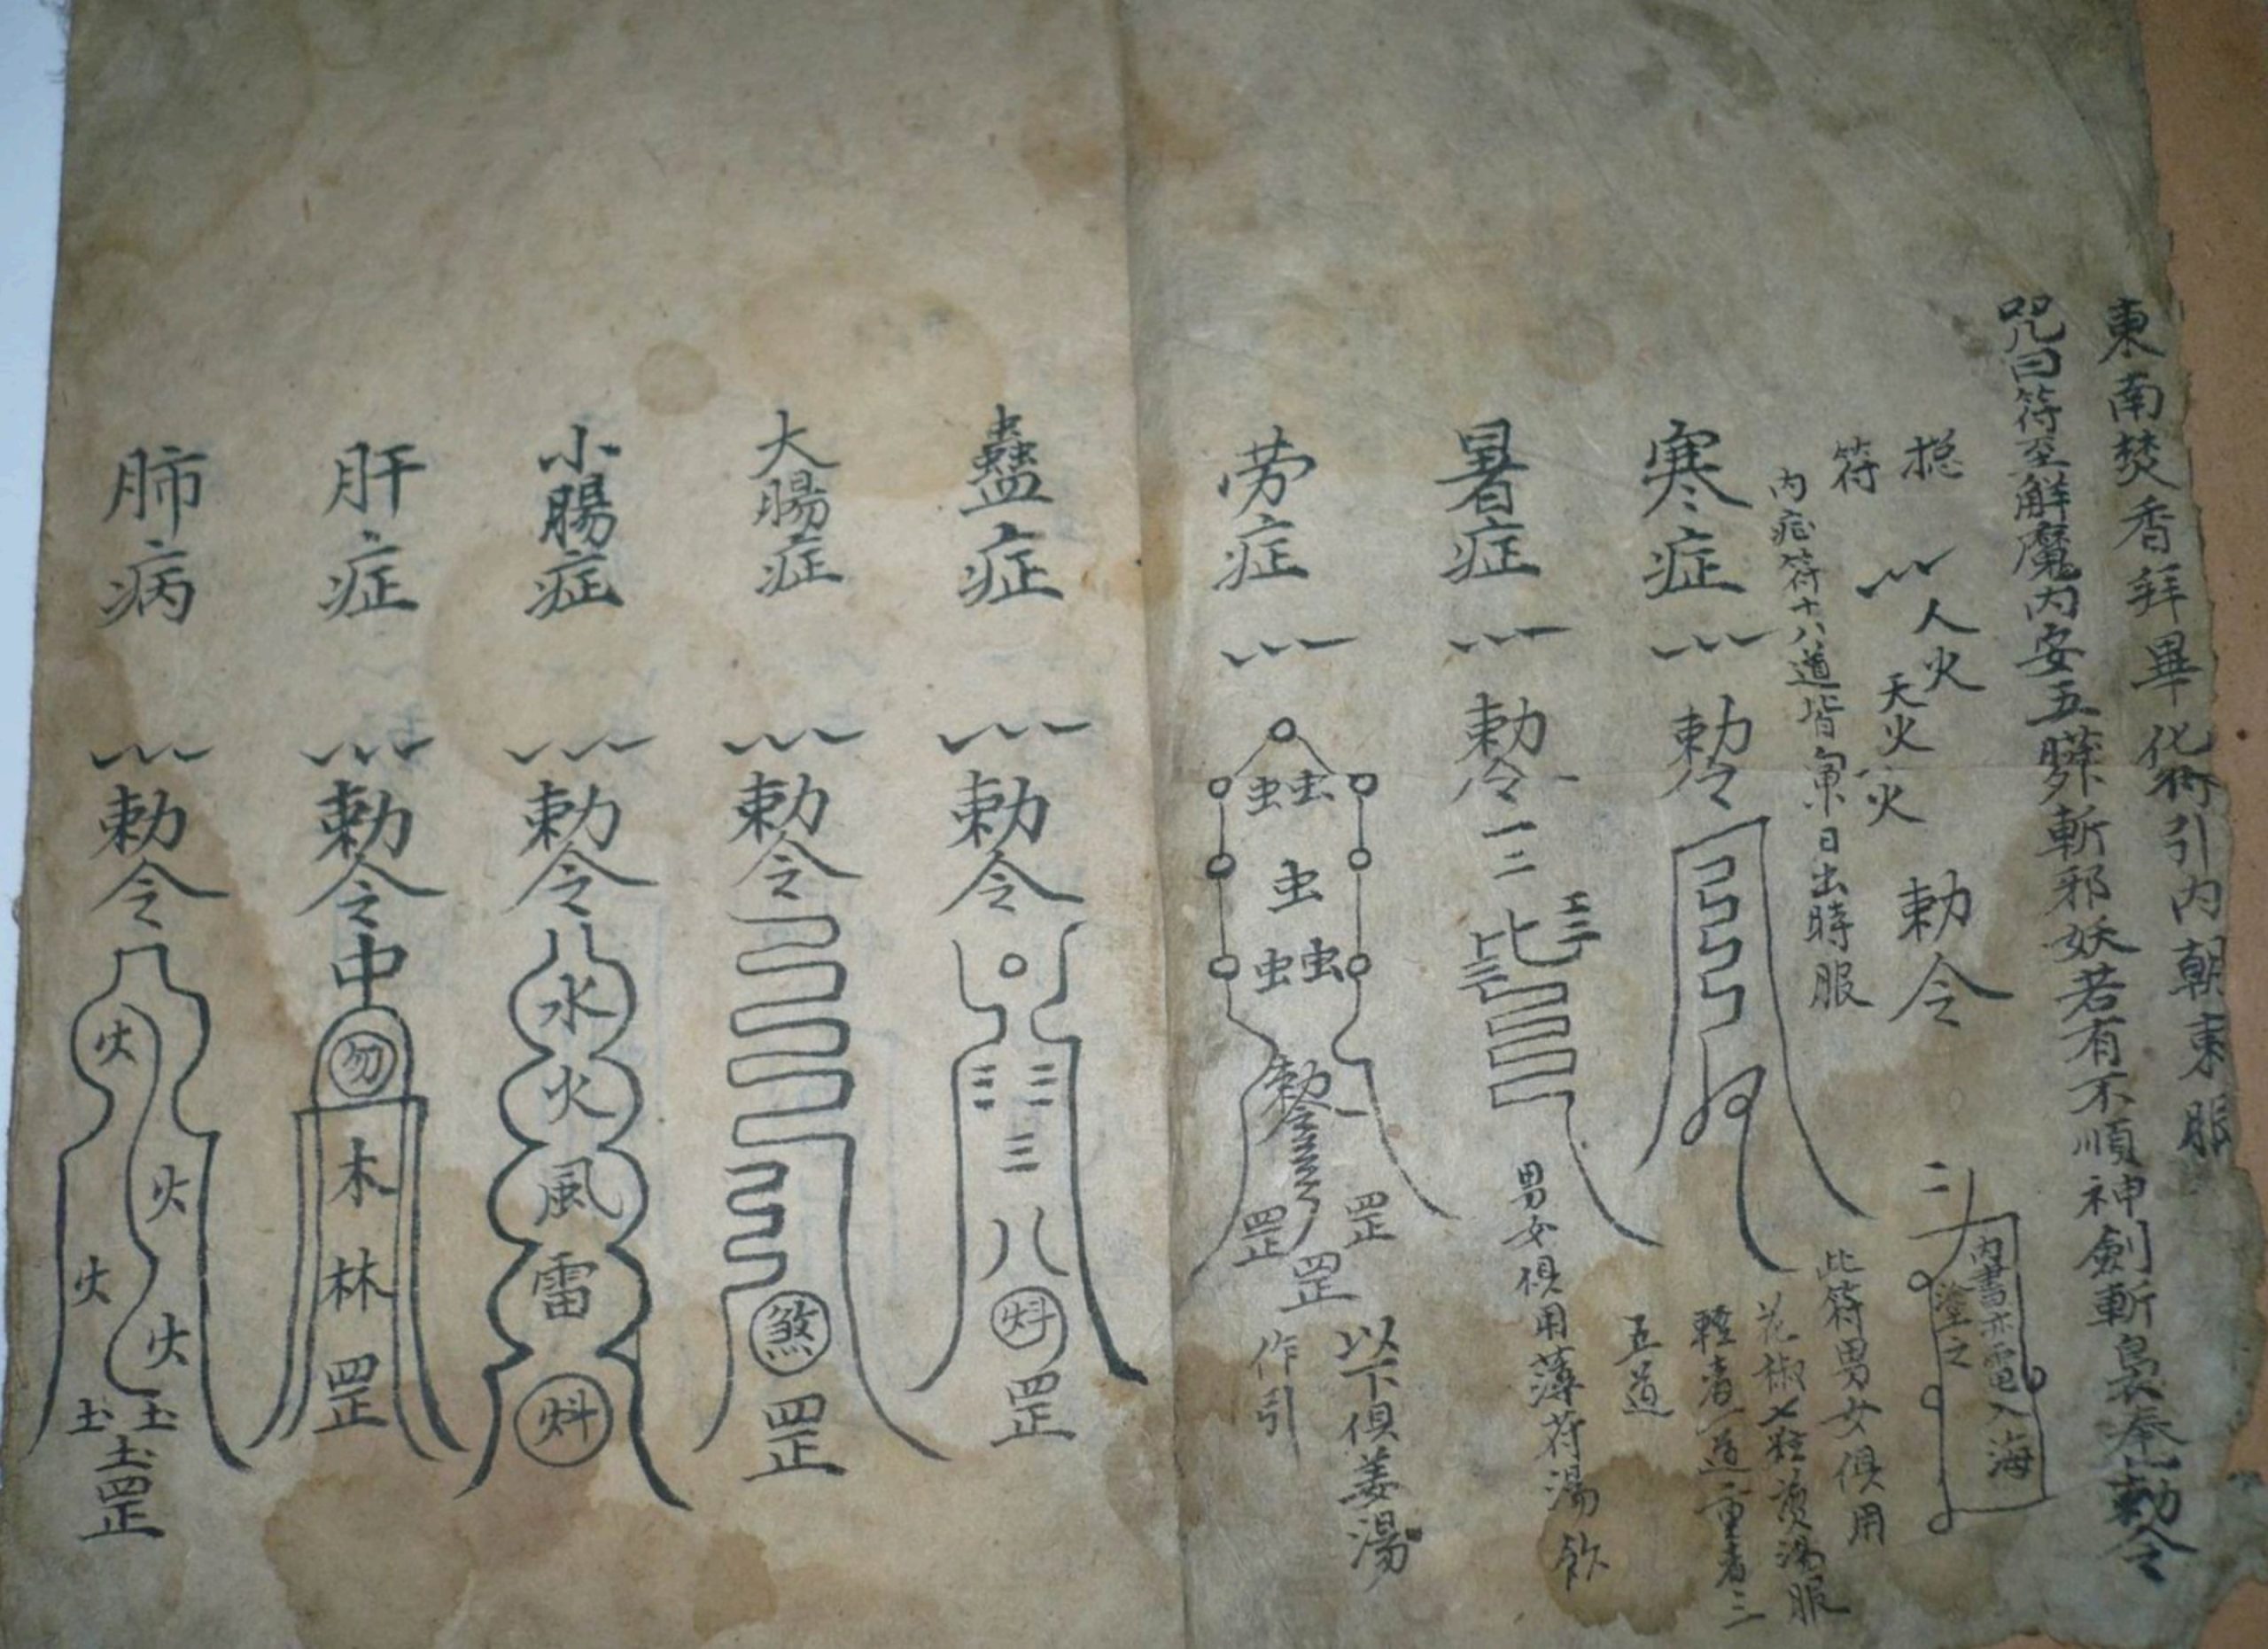 東南焚香拜畢化符引內朝東服
咒曰符至解魔內安五臟外斬邪妖若有不順神劍斬裊奉勅令
総符
人火
天火
火
勅令
二
內書亦電入海
塗之
內症符十八道皆向東日出時服
此符男女俱用
花椒七粒煎湯服
輕者一道重者三
五道
寒症
勅令
弓弓
暑症
勅令
一二
比
三
三
男女俱用薄荷湯飲
劳症
虫虫
虫
虫虫
勅令
罡罡
罡
以下俱姜湯
作引
蠱症
勅令
三三
三
八
炓
罡
大腸症
勅令
煞
罡
小腸症
勅令
水
火
風
雷
炓
肝症
勅令
中
勿
木
林
罡
肺病
勅令
火
火
火
火
土土
土
罡